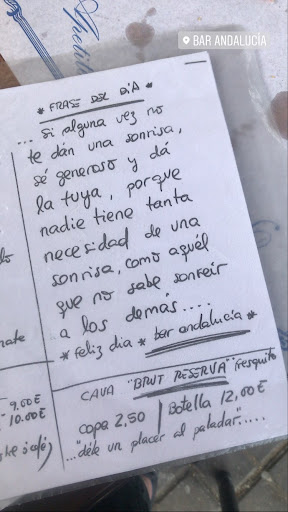 BAR ANDALUCÍA
* FRASE DEL DÍA *
... si alguna vez no
te dán una sonrisa,
sé generoso y dá
la tuya, porque
nadie tiene tanta
necesidad de una
sonrisa, como aquél
que no sabe sonreir
a los demás....
* feliz dia * bar andalucia *
CAVA "BRUT RESERVA" fresquito
copa 2,50 | Botella 12,00€
..."déle un placer al paladar".....
9.00€
- 10.00€